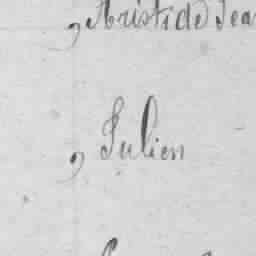 , Aristide Jea
, Julien